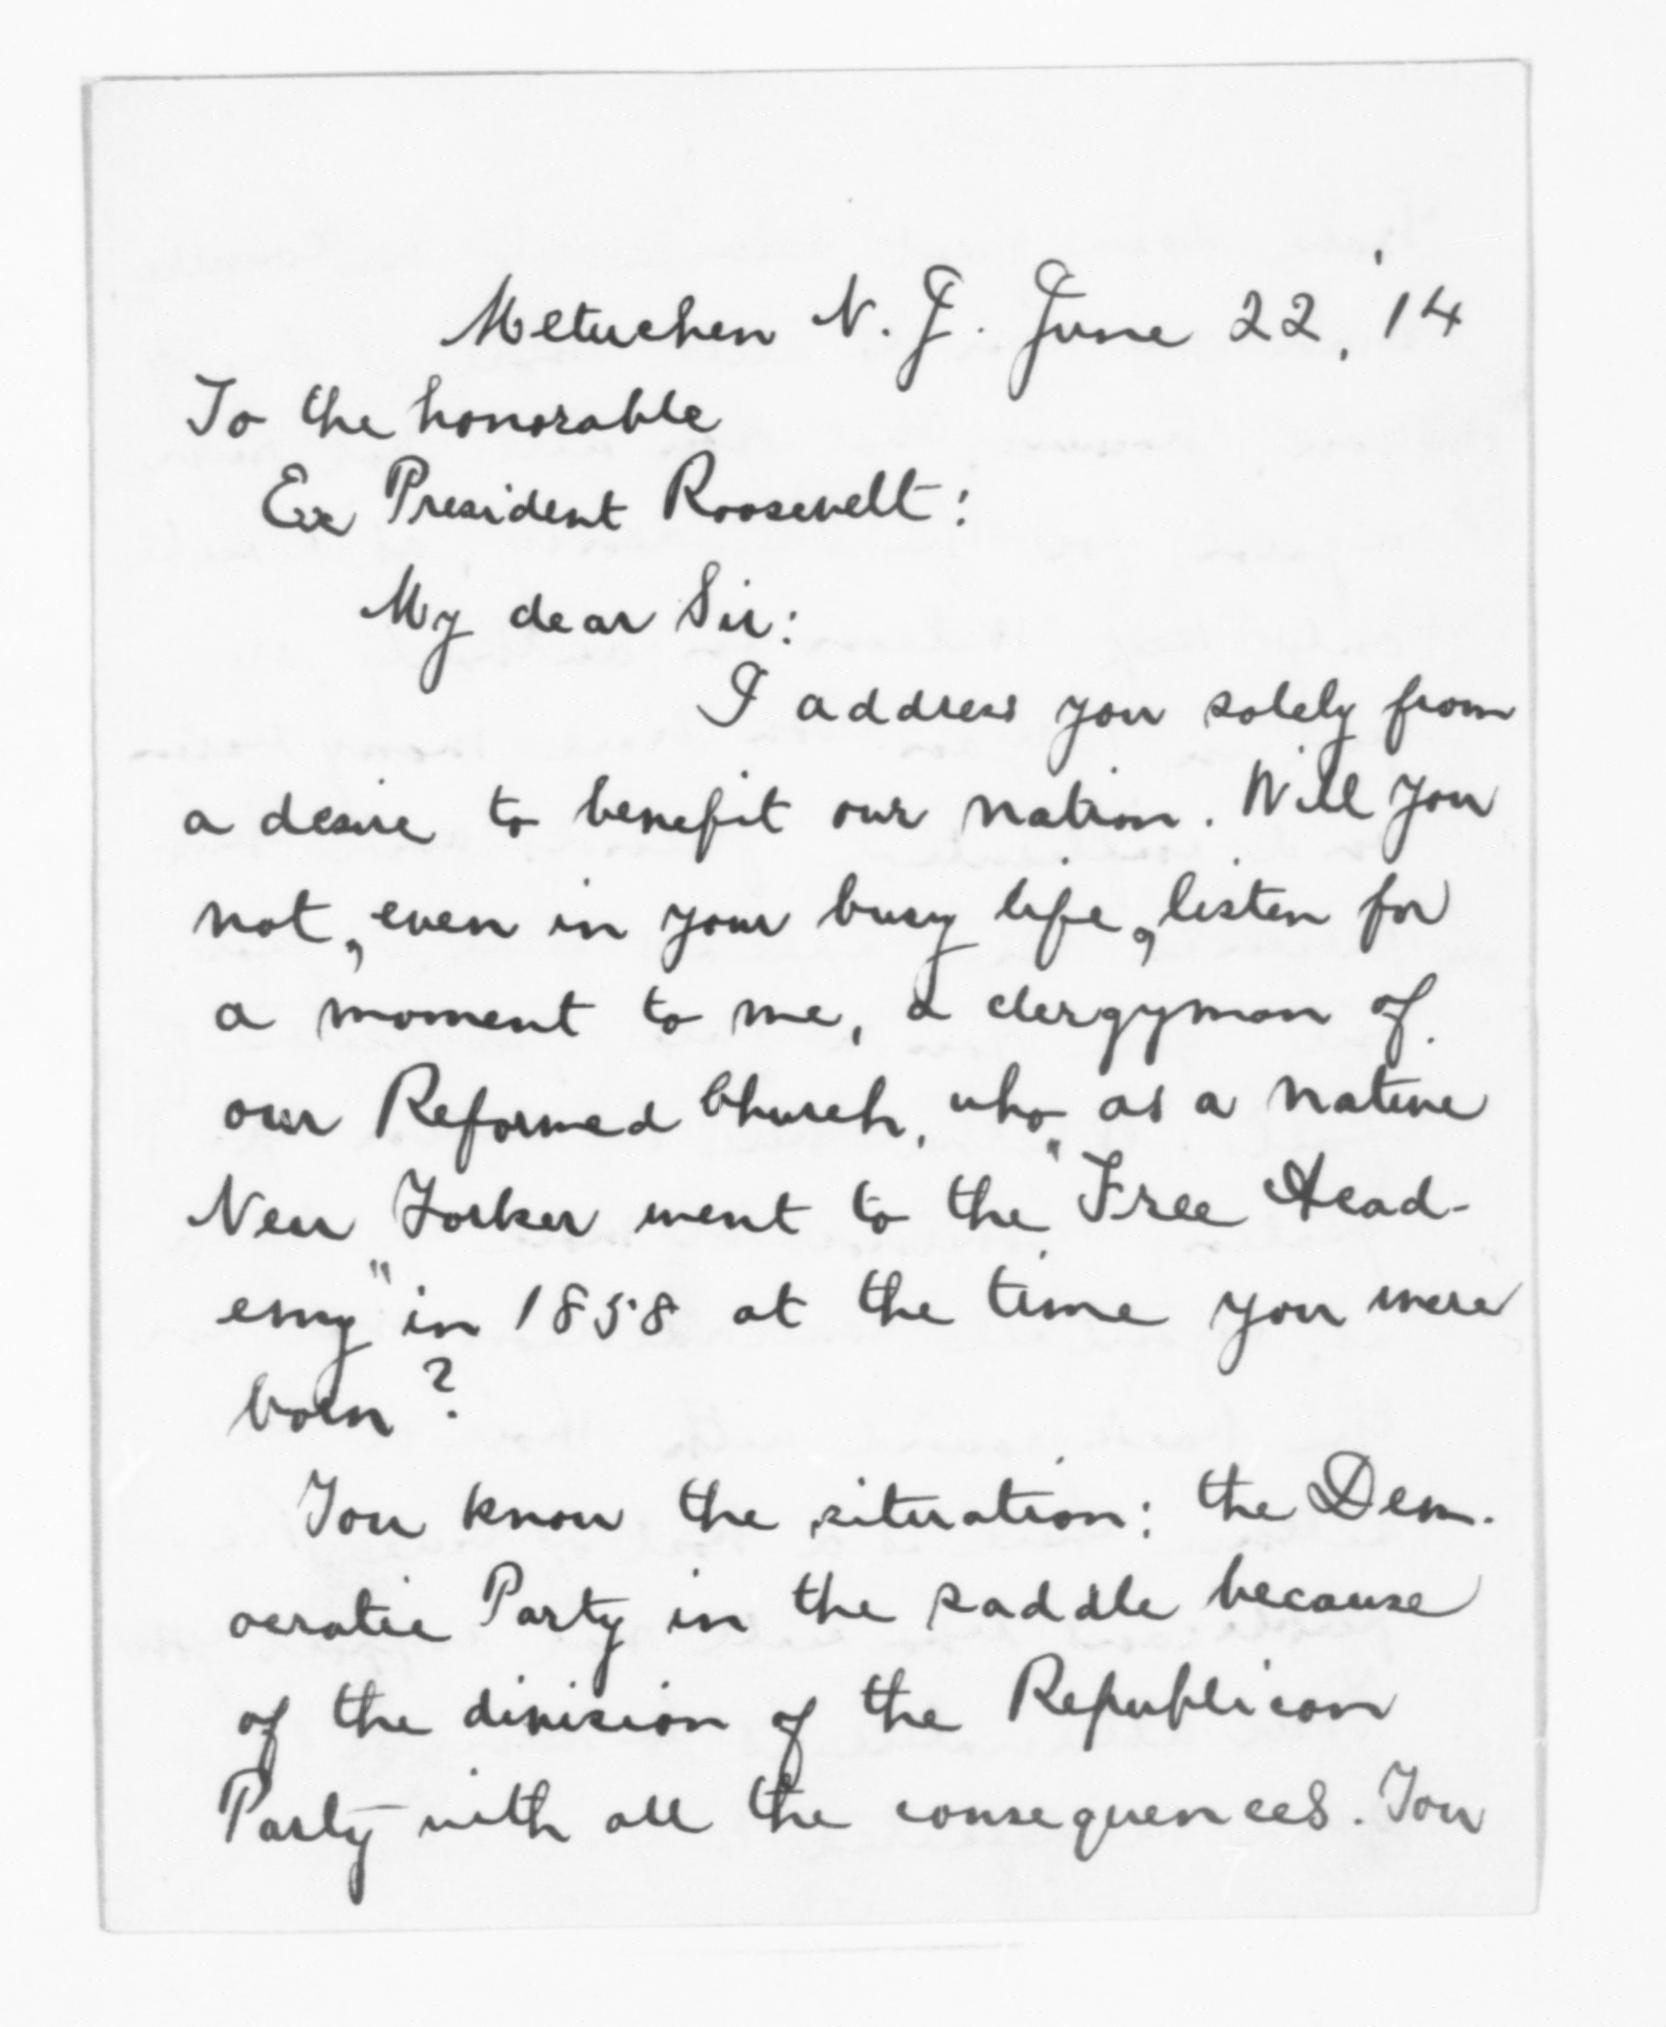 Metuchen N. J. June 22, '14
To the honorable
Ex President Roosevelt:
My dear Sir:
I address you solely from
a desire to benefit our nation. Will you
not, even in your busy life, listen for
a moment to me, a clergyman of
our Reformed Church, who as a native
New Yorker went to the "Free Acad-
emy" in 1858 at the time you were
born?
You know the situation: the Dem-
ocratic Party in the saddle because
of the division of the Republican
Party with all the consequences. You